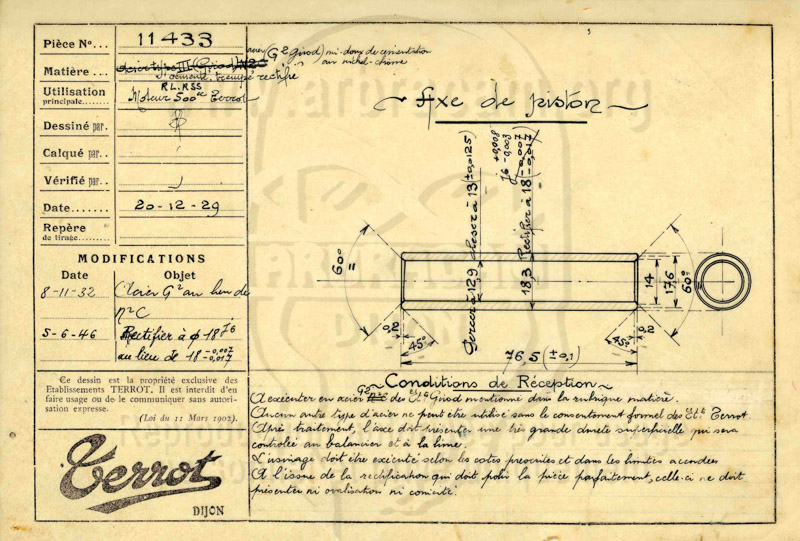 Pièce N°... 11433
Matière... acier type III (Girod) N2C acier (G² Girod) mi-doux de cémentation
au nickel-chrome
cémenté, trempé rectifié
Utilisation R.L. RSS
principale........ Moteur 500cc Terrot
Dessiné par.
Calqué par..
Vérifié par..
Date....... 20-12-29
Repère
de tirage..........
MODIFICATIONS
Date Objet
8-11-32 L'acier G² au lieu de
N²C
5-6-46 Rectifier à φ 18 J6
au lieu de 18 -0,007 -0,017
Ce dessin est la propriété exclusive des
Etablissements TERROT. Il est interdit d'en
faire usage ou de le communiquer sans autori-
sation expresse.
(Loi du 11 Mars 1902).
Terrot
DIJON
Axe de piston
Percer à 12,9 Aléser à 13 (±0,0125)
18,3 Rectifier à 18 (-0,007 -0,017)
J6 +0,008 -0,003
60°
14
17,6
60°
0,20
45°
45°
0,2
76,5 (±0,1)
Conditions de Réception
A exécuter en acier G² des Ets Girod mentionné dans la rubrique matière.
Aucun autre type d'acier ne peut être utilisé sans le consentement formel des Ets Terrot
Après traitement, l'axe doit présenter une très grande dureté superficielle qui sera
contrôlée au balancier et à la lime.
L'usinage doit être exécuté selon les cotes prescrites et dans les limites accordées
A l'issue de la rectification qui doit polir la pièce parfaitement, celle-ci ne doit
présenter ni ovalisation ni conicité.